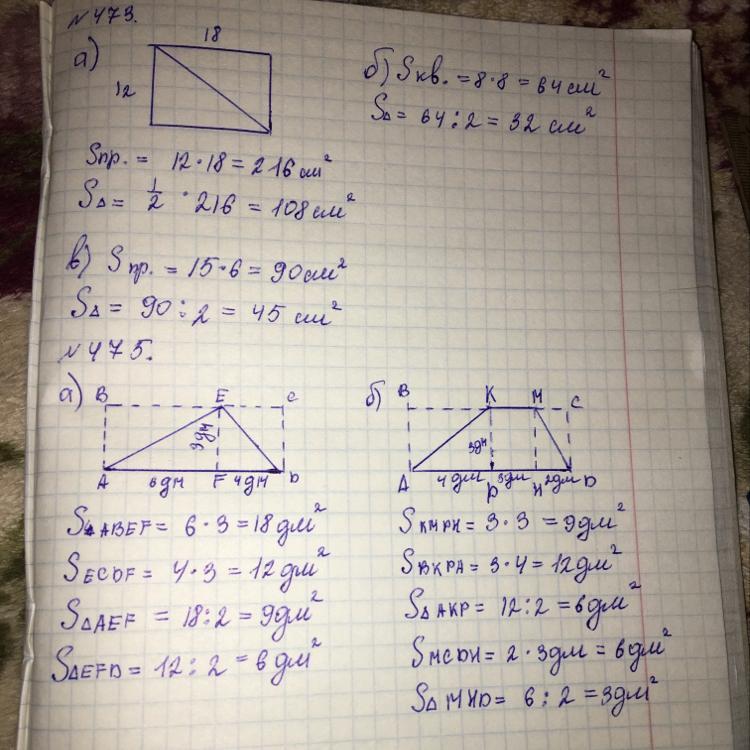 №473.
а)
18
12
Sпр. = 12·18 = 216 см²
S△ = 1/2 · 216 = 108 см²
б) Sкв. = 8·8 = 64 см²
S△ = 64 : 2 = 32 см²
в) Sпр. = 15·6 = 90 см²
S△ = 90 : 2 = 45 см²
№475.
а) B E C
3дм
A 6дм F 4дм D
SABEF = 6·3 = 18 дм²
SECDF = 4·3 = 12 дм²
S△AEF = 18:2 = 9 дм²
S△EFD = 12:2 = 6 дм²
б) B K M C
3дм
A 4дм P 3дм H 2дм D
SKMPH = 3·3 = 9 дм²
SBKPA = 3·4 = 12 дм²
S△AKP = 12:2 = 6 дм²
SMCDH = 2·3дм = 6 дм²
S△MHD = 6 : 2 = 3 дм²